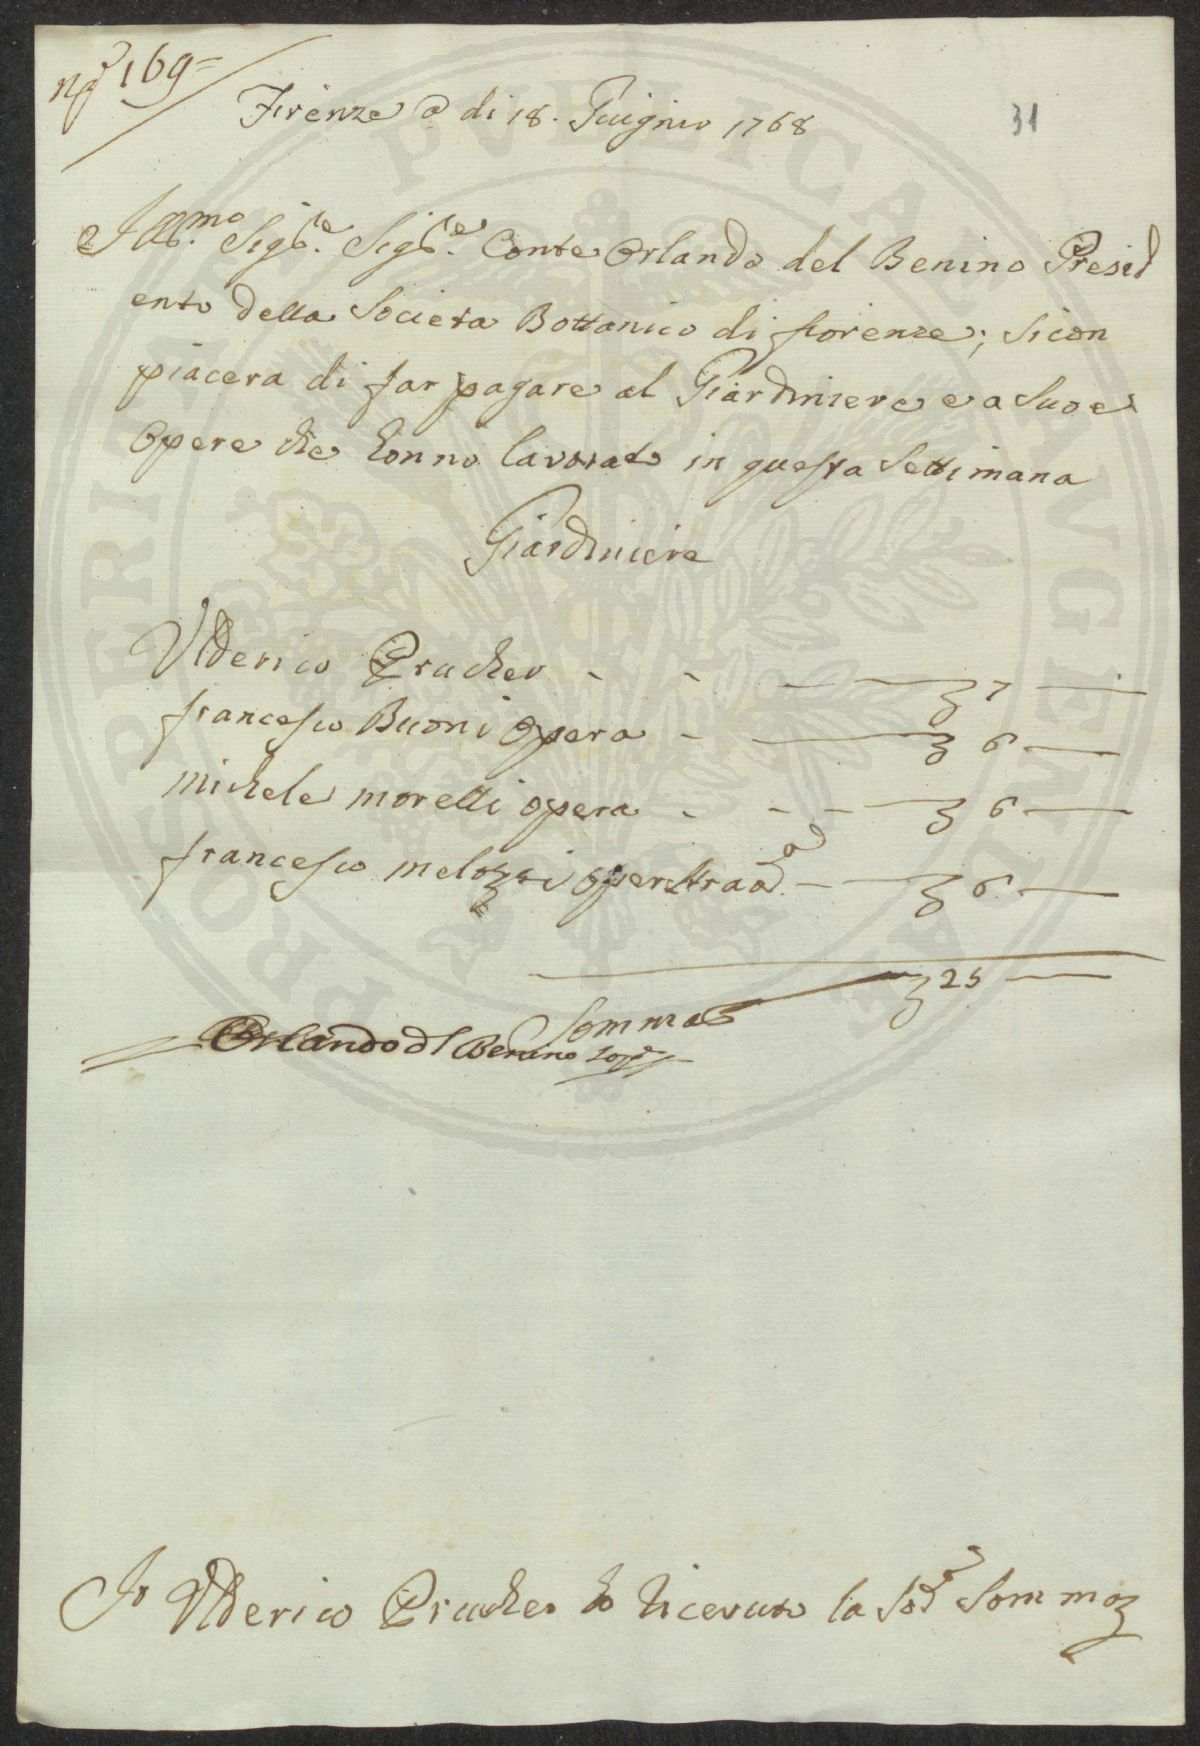 nº 169=
Firenze a di 18. Giugnio 1768
31
Illmo. Sigre. Sigre. Conte Orlando del Benino Presid
ento della Societa Bottanico di fiorenze; si con
piacera di far pagare al Giardiniere e a Suoe
Opere che honno lavorato in questa Settimana
Giardiniere
Ulderico Prucher - - - 7 -
francesco Buoni opera - 6 -
michele morelli opera - - - 6 -
francesco melozzi opera - 6 -
Somma 25 -
Orlando del Benino
Io Ulderico Prucher ho riceuto la Somma
PVBLICAE PROSPERITATI AVGENDAE